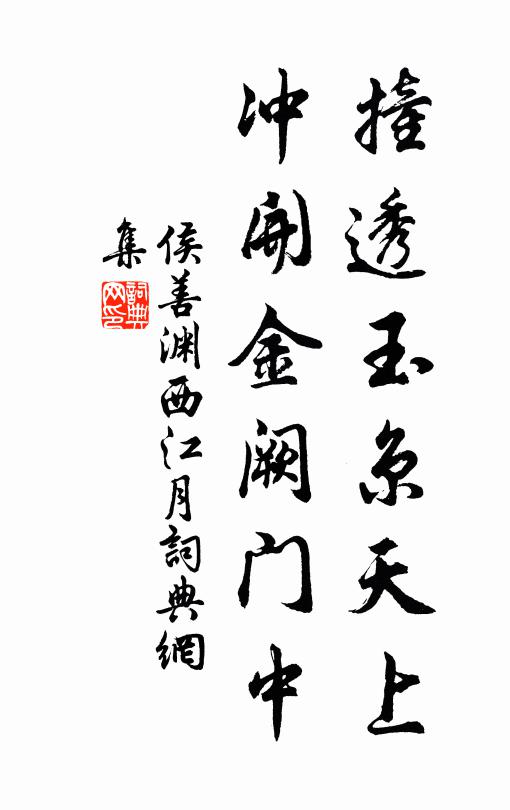 撞透玉京天上
冲開金阙门中
侯善渊西江月詞典網
集
詞典
网印